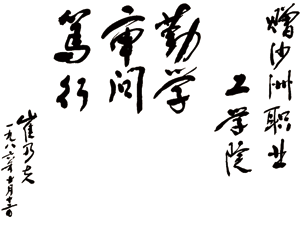 赠沙洲职业
工学院
勤学
审问
笃行
崔乃夫
一九八六年十月十二日